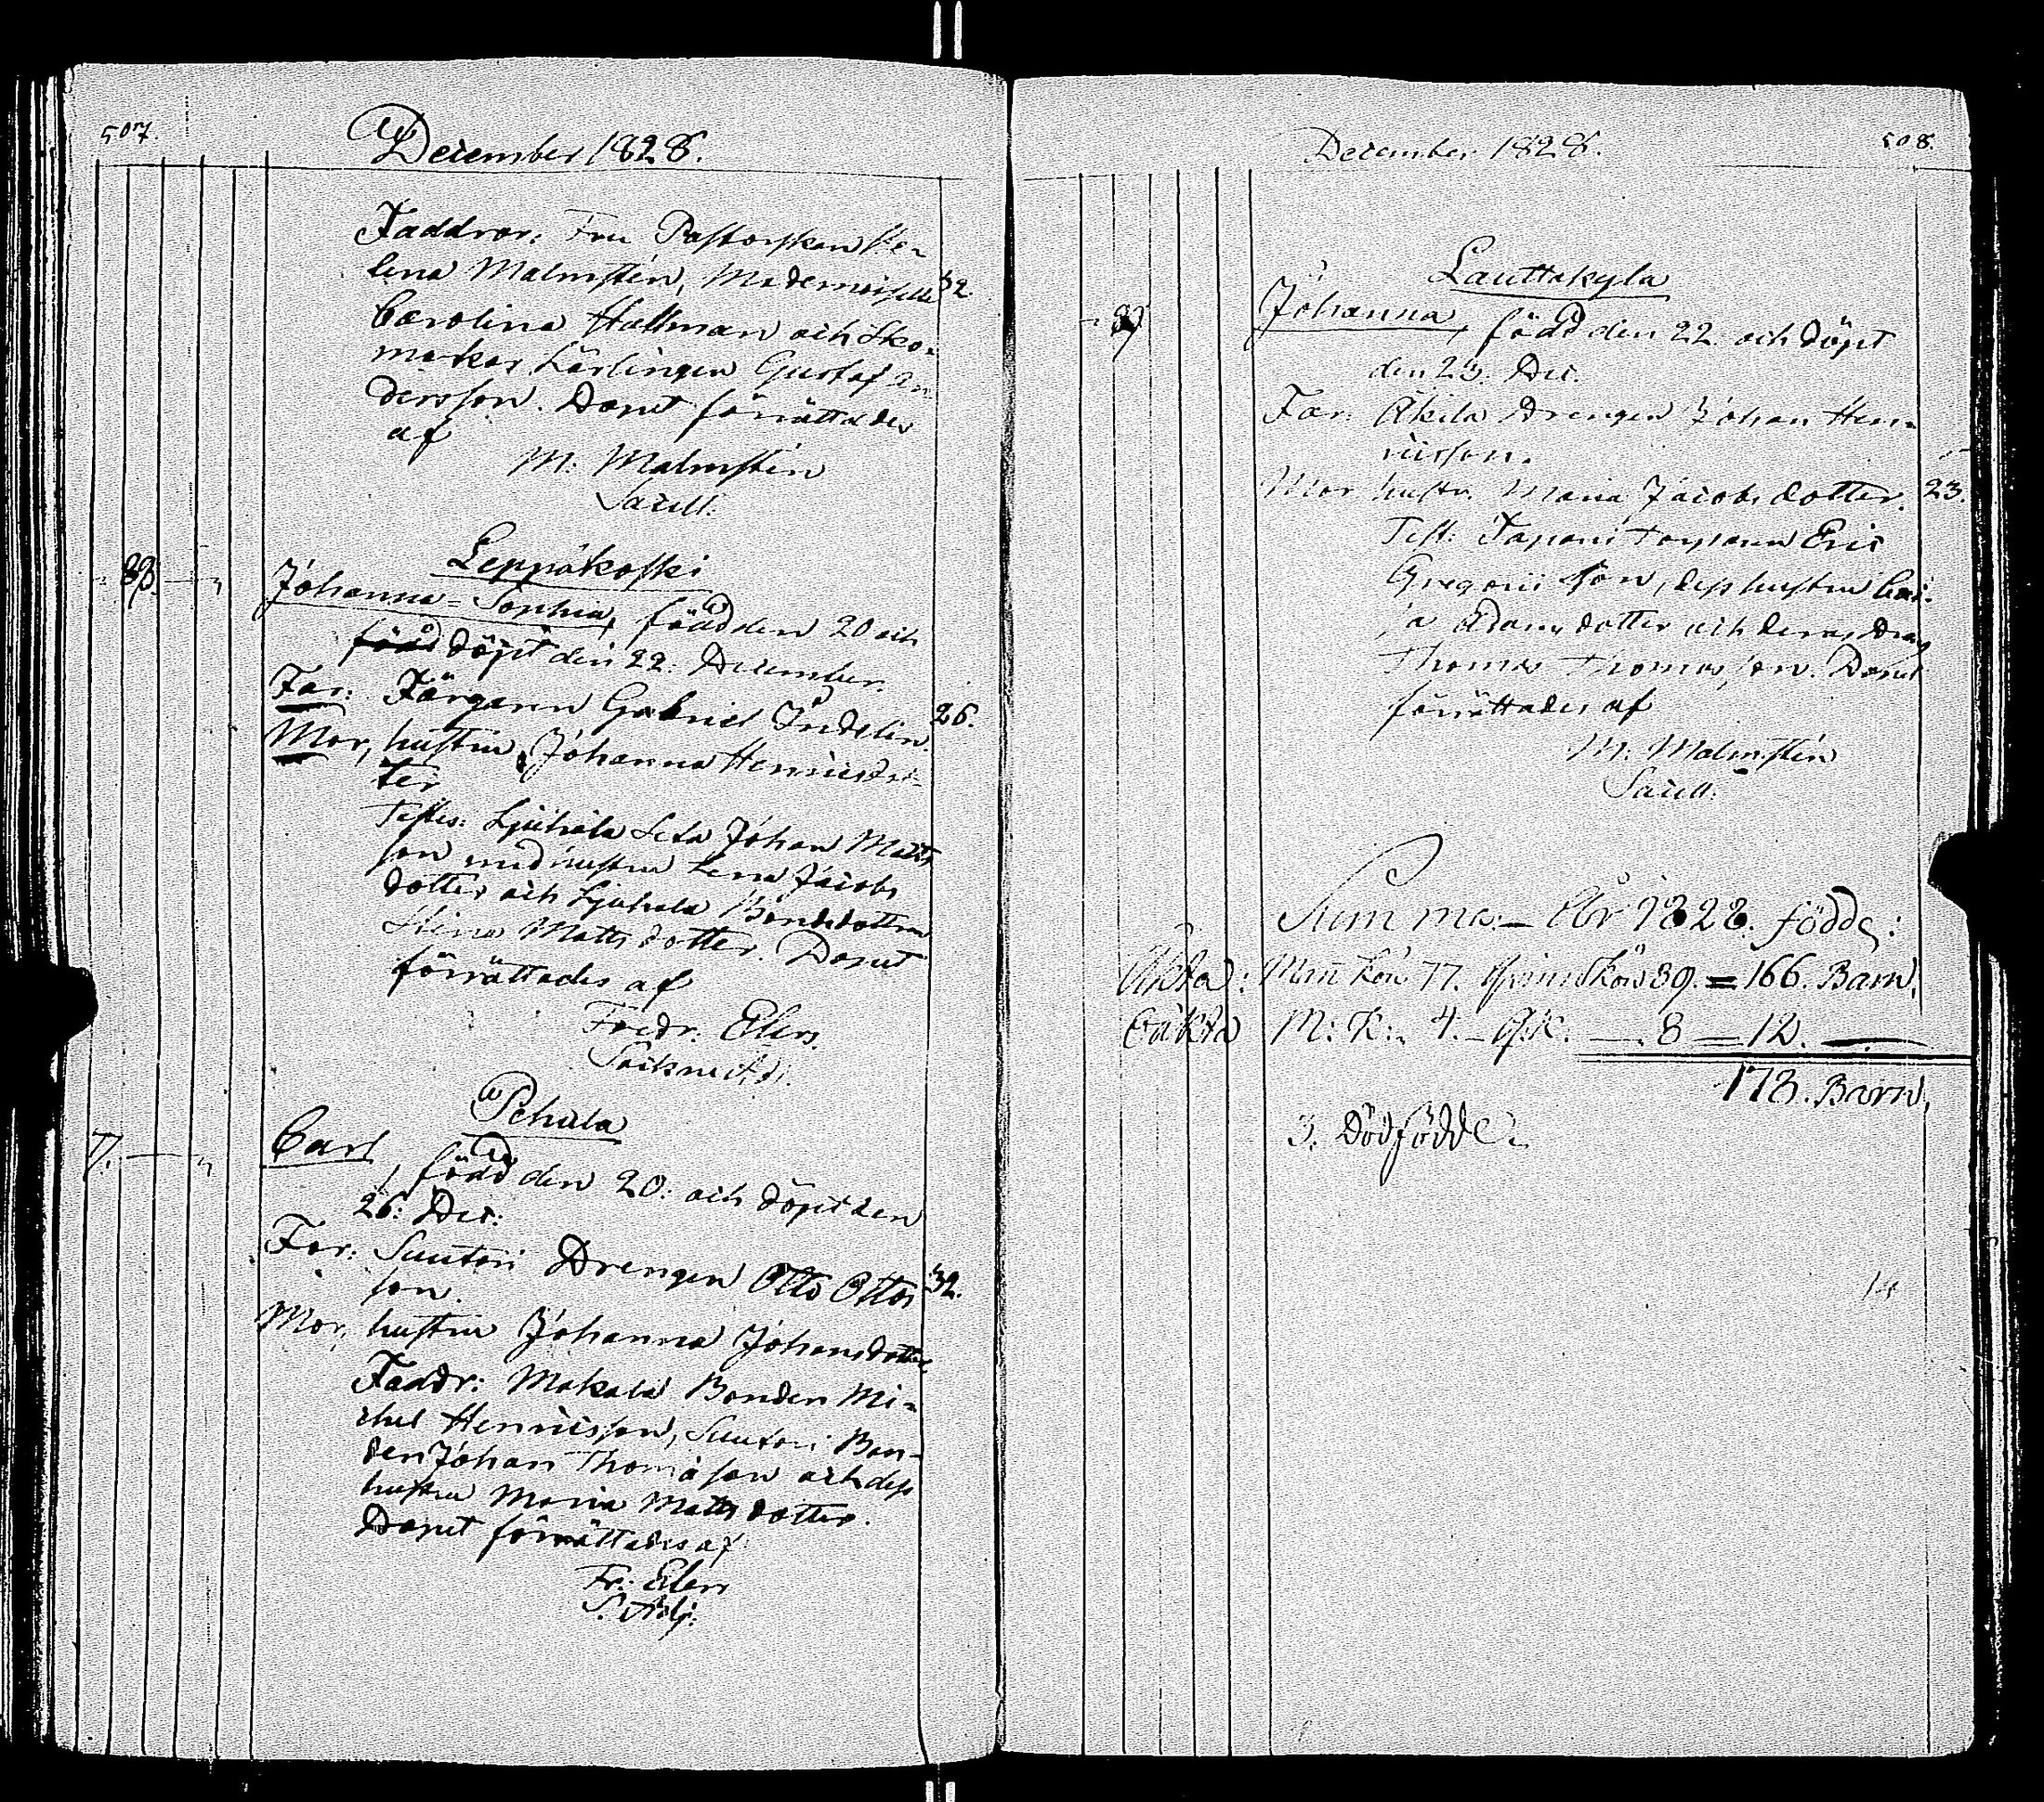 507.
December 1828.
Faddrar: Fru Pastorskan He-
lena Malmstén, Mademoiselle 32.
Carolina Hallman och Sko-
makar Lärlingen Gustaf An-
dersson. Dopet förrättades
af
M: Malmstén
Sacell:
Leppäkoski
88. Johanna-Sophia, född den 20 och
född döpt den 22. December.
Far: Färgaren Gabriel Indelin. 26.
Mor, hustru Johanna Henricsdot-
ter
Testes: Ljuhala Johan Matts
son med hustru Lena Jacobs
dotter och Ljuhala Bondedottren
Stina Mattsdotter. Dopet
förrättades af
Fredr: Elers.
Pehula
77. Carl, född den 20: och döpt den
26: Dec:
Far: Suutari Drengen Otto Ottos 32.
son.
Mor, hustru Johanna Johansdotter
Faddr: Makala Bonden Mi-
chel Henricsson, Suutari Bon-
den Johan Thomasson och dess
hustru Maria Mattsdotter.
Dopet förrättades af
Fr: Elers
P. Adj:
December 1828.
508.
Lauttakylä
89 Johanna, född den 22. och döpt
den 23. Dec.
Far: Äkilä Drengen Johan Hen-
ricsson.
Mor hustr. Maria Jacobsdotter. 23.
Test: Tapani Torparen Eric
Gregorii son, dess hustru Cai-
sa Adamsdotter och deras Dräng
Thomas Thomasson. Dopet
förrättades af
M. Malmstén
Sacell:
Summa:- År 1828. födde:
Äkta: Man kön 77. Qvinnkön 89. = 166. Barn.
Oäkta M: K: 4. - Q.K: - 8 - 12. -
178. Barn.
3. Dödfödde.